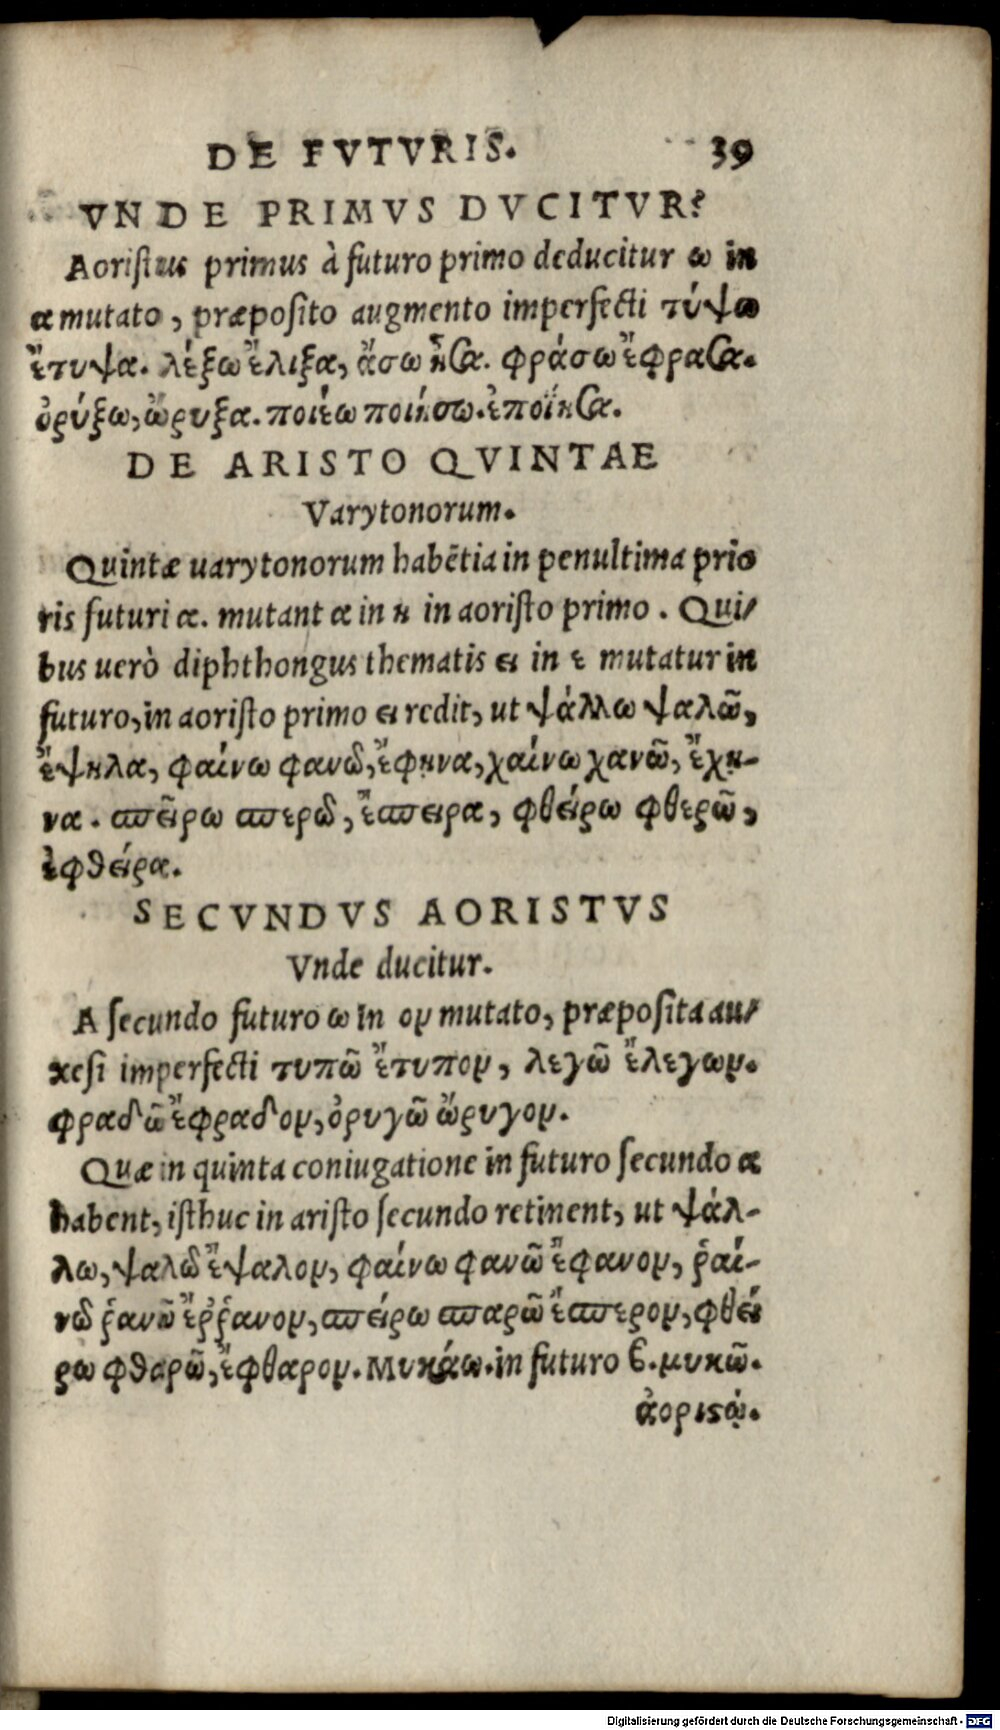 DE FVTVRIS. 39
VNDE PRIMVS DVCITVR?
Aoristus primus à futuro primo deducitur ω in
α mutato, præposito augmento imperfecti τύψω
ἔτυψα. λέξω ἔλιξα, ἄσω ἦσα. φράσω ἔφρασα.
ὀρύξω, ὤρυξα. ποιέω ποιήσω. ἐποίησα.
DE ARISTO QVINTAE
Varytonorum.
Quintæ uarytonorum habẽtia in penultima prio
ris futuri α. mutant α in η in aoristo primo. Qui/
bus uerò diphthongus thematis ει in ε mutatur in
futuro, in aoristo primo ει redit, ut ψάλλω ψαλῶ,
ἔψηλα, φαίνω φανῶ, ἔφηνα, χαίνω χανῶ, ἔχη-
να. σπεῖρω σπερῶ, ἔσπειρα, φθείρω φθερῶ,
ἐφθείρα.
SECVNDVS AORISTVS
Vnde ducitur.
A secundo futuro ω in ον mutato, præposita au/
xesi imperfecti τυπῶ ἔτυπον, λεγῶ ἔλεγων.
φραδῶ ἔφραδον, ὀρυγῶ ὤρυγον.
Quæ in quinta coniugatione in futuro secundo α
habent, isthuc in aristo secundo retinent, ut ψάλ-
λω, ψαλῶ ἔψαλον, φαίνω φανῶ ἔφανον, ῥαί-
νῶ ῥανῶ ἔῤῥανον, σπείρω σπαρῶ ἔσπερον, φθεί
ρω φθαρῶ, ἔφθαρον. Μυκάω. in futuro ϐ. μυκῶ.
ἀοριστῳ.
Digitalisierung gefördert durch die Deutsche Forschungsgemeinschaft - DFG